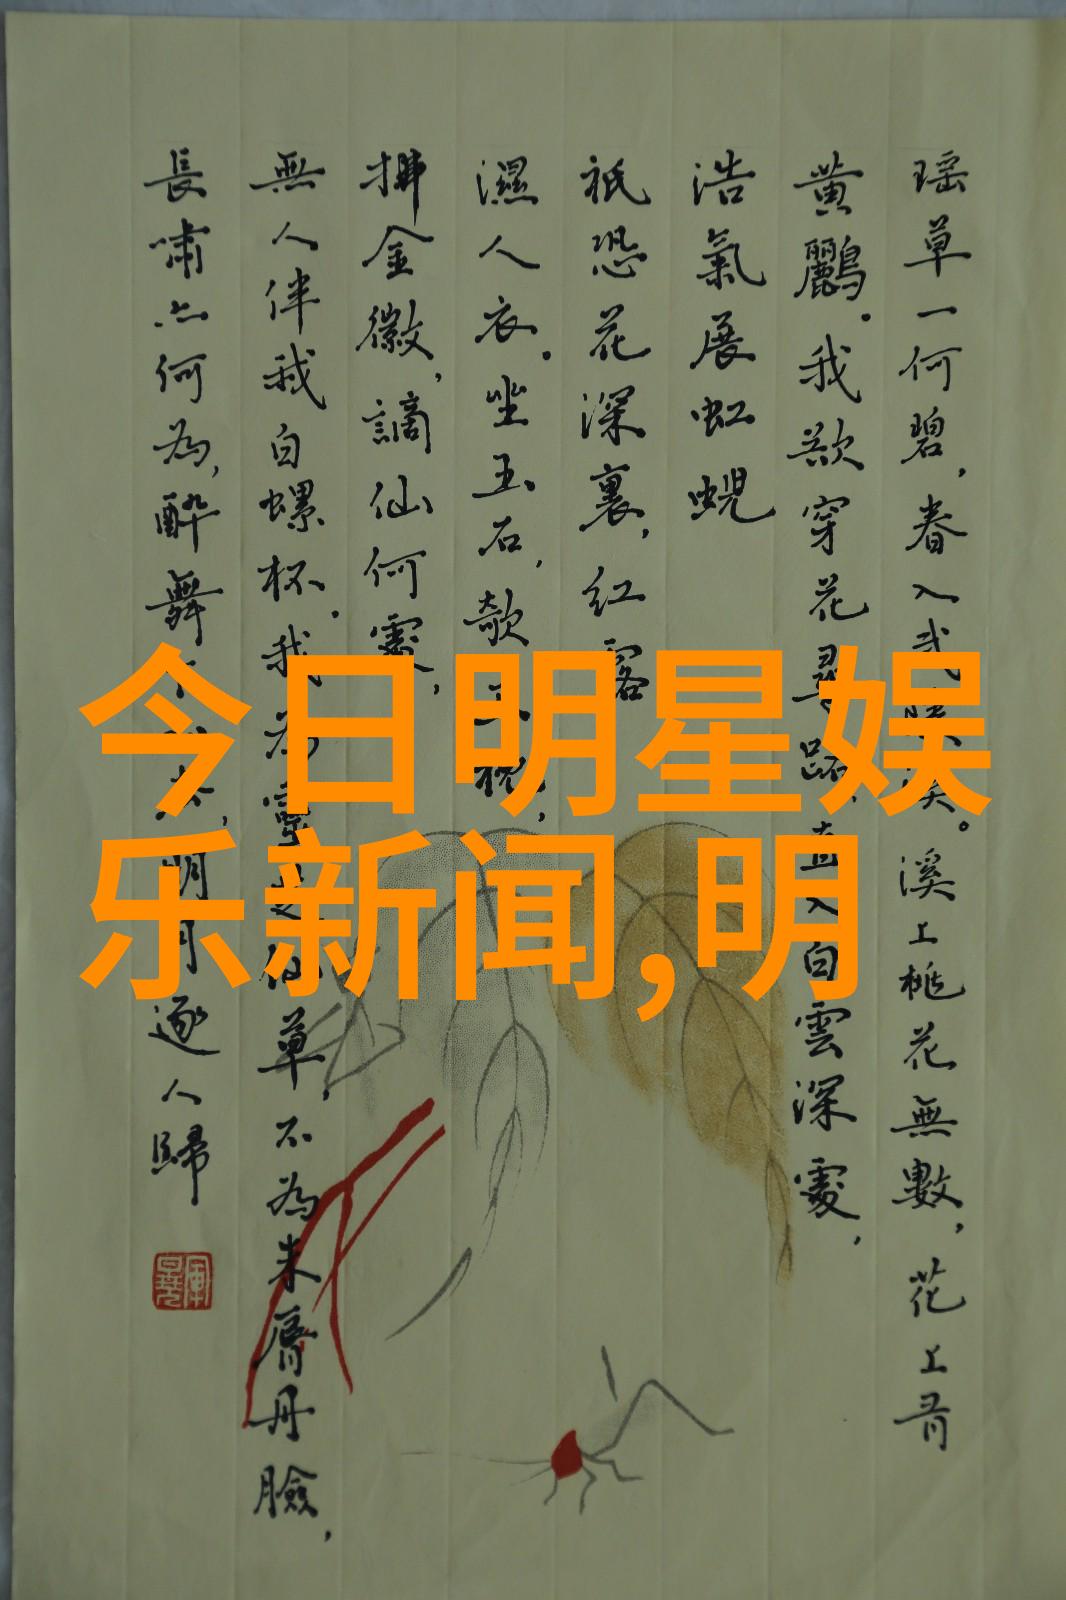 瑶草一何碧,春入武陵溪。溪上桃花無數,花上有
黄鸝。我欲穿花尋路,直入白雲深處,
浩氣展虹蜺
祇恐花深裏,紅露
濕人衣。坐玉石,欹玉枕,
拂金徽,謫仙何處,
無人伴我白螺杯。我為靈芝仙草,不為朱脣丹臉,
長嘯亦何為,醉舞下山去,明月逐人歸
今日明星娱
乐新闻,明